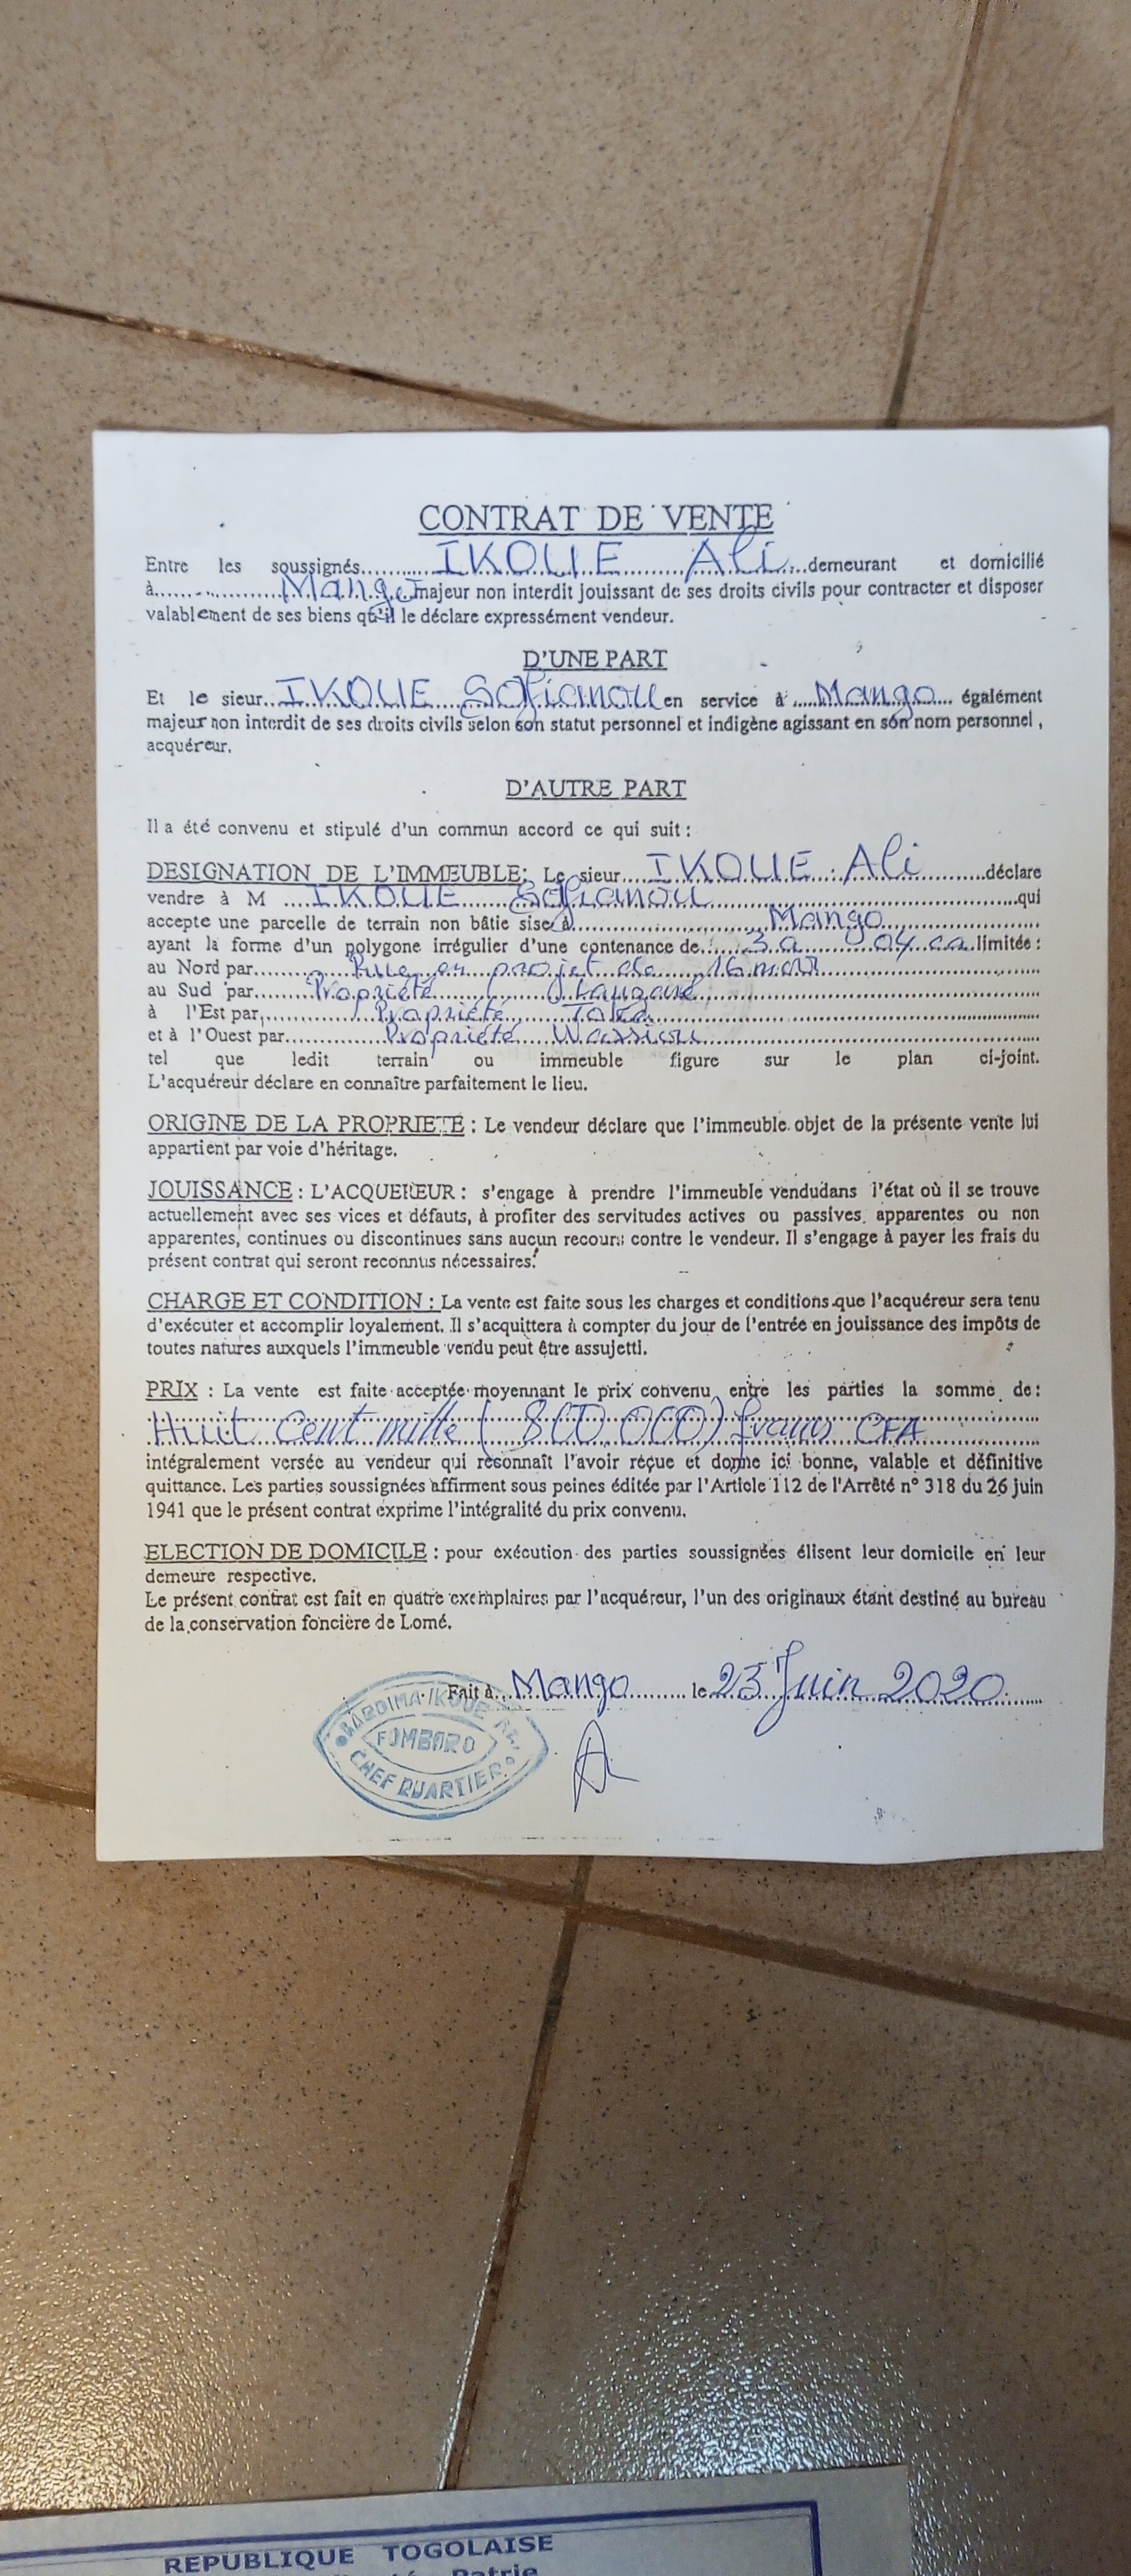 CONTRAT DE VENTE
Entre les soussignés.......... IKOUE Ali demeurant et domicilié
à.................. Mango majeur non interdit jouissant de ses droits civils pour contracter et disposer
valablement de ses biens qu'il le déclare expressément vendeur.
D'UNE PART
Et le sieur IKOUE Sofianou en service à Mango également
majeur non interdit de ses droits civils selon son statut personnel et indigène agissant en son nom personnel ,
acquéreur.
D'AUTRE PART
Il a été convenu et stipulé d'un commun accord ce qui suit :
DESIGNATION DE L'IMMEUBLE: Le sieur IKOUE Ali déclare
vendre à M IKOUE Sofianou qui
accepte une parcelle de terrain non bâtie sise à Mango
ayant la forme d'un polygone irrégulier d'une contenance de 3a 04 ca limitée :
au Nord par Rue en projet de 16 m
au Sud par Propriété
à l'Est par Propriété
et à l'Ouest par Propriété Wassiou
tel que ledit terrain ou immeuble figure sur le plan ci-joint.
L'acquéreur déclare en connaître parfaitement le lieu.
ORIGINE DE LA PROPRIETE : Le vendeur déclare que l'immeuble objet de la présente vente lui
appartient par voie d'héritage.
JOUISSANCE : L'ACQUEREUR : s'engage à prendre l'immeuble vendudans l'état où il se trouve
actuellement avec ses vices et défauts, à profiter des servitudes actives ou passives apparentes ou non
apparentes, continues ou discontinues sans aucun recours contre le vendeur. Il s'engage à payer les frais du
présent contrat qui seront reconnus nécessaires.
CHARGE ET CONDITION : La vente est faite sous les charges et conditions que l'acquéreur sera tenu
d'exécuter et accomplir loyalement. Il s'acquittera à compter du jour de l'entrée en jouissance des impôts de
toutes natures auxquels l'immeuble vendu peut être assujetti.
PRIX : La vente est faite acceptée moyennant le prix convenu entre les parties la somme de :
Huit Cent mille (800.000) francs CFA
intégralement versée au vendeur qui reconnaît l'avoir réçue et donne ici bonne, valable et définitive
quittance. Les parties soussignées affirment sous peines éditée par l'Article 112 de l'Arrêté n° 318 du 26 juin
1941 que le présent contrat exprime l'intégralité du prix convenu.
ELECTION DE DOMICILE : pour exécution des parties soussignées élisent leur domicile en leur
demeure respective.
Le présent contrat est fait en quatre exemplaires par l'acquéreur, l'un des originaux étant destiné au bureau
de la conservation foncière de Lomé.
Fait à Mango le 23 Juin 2020
FOMBORO
CHEF QUARTIER
REPUBLIQUE TOGOLAISE
Patrie